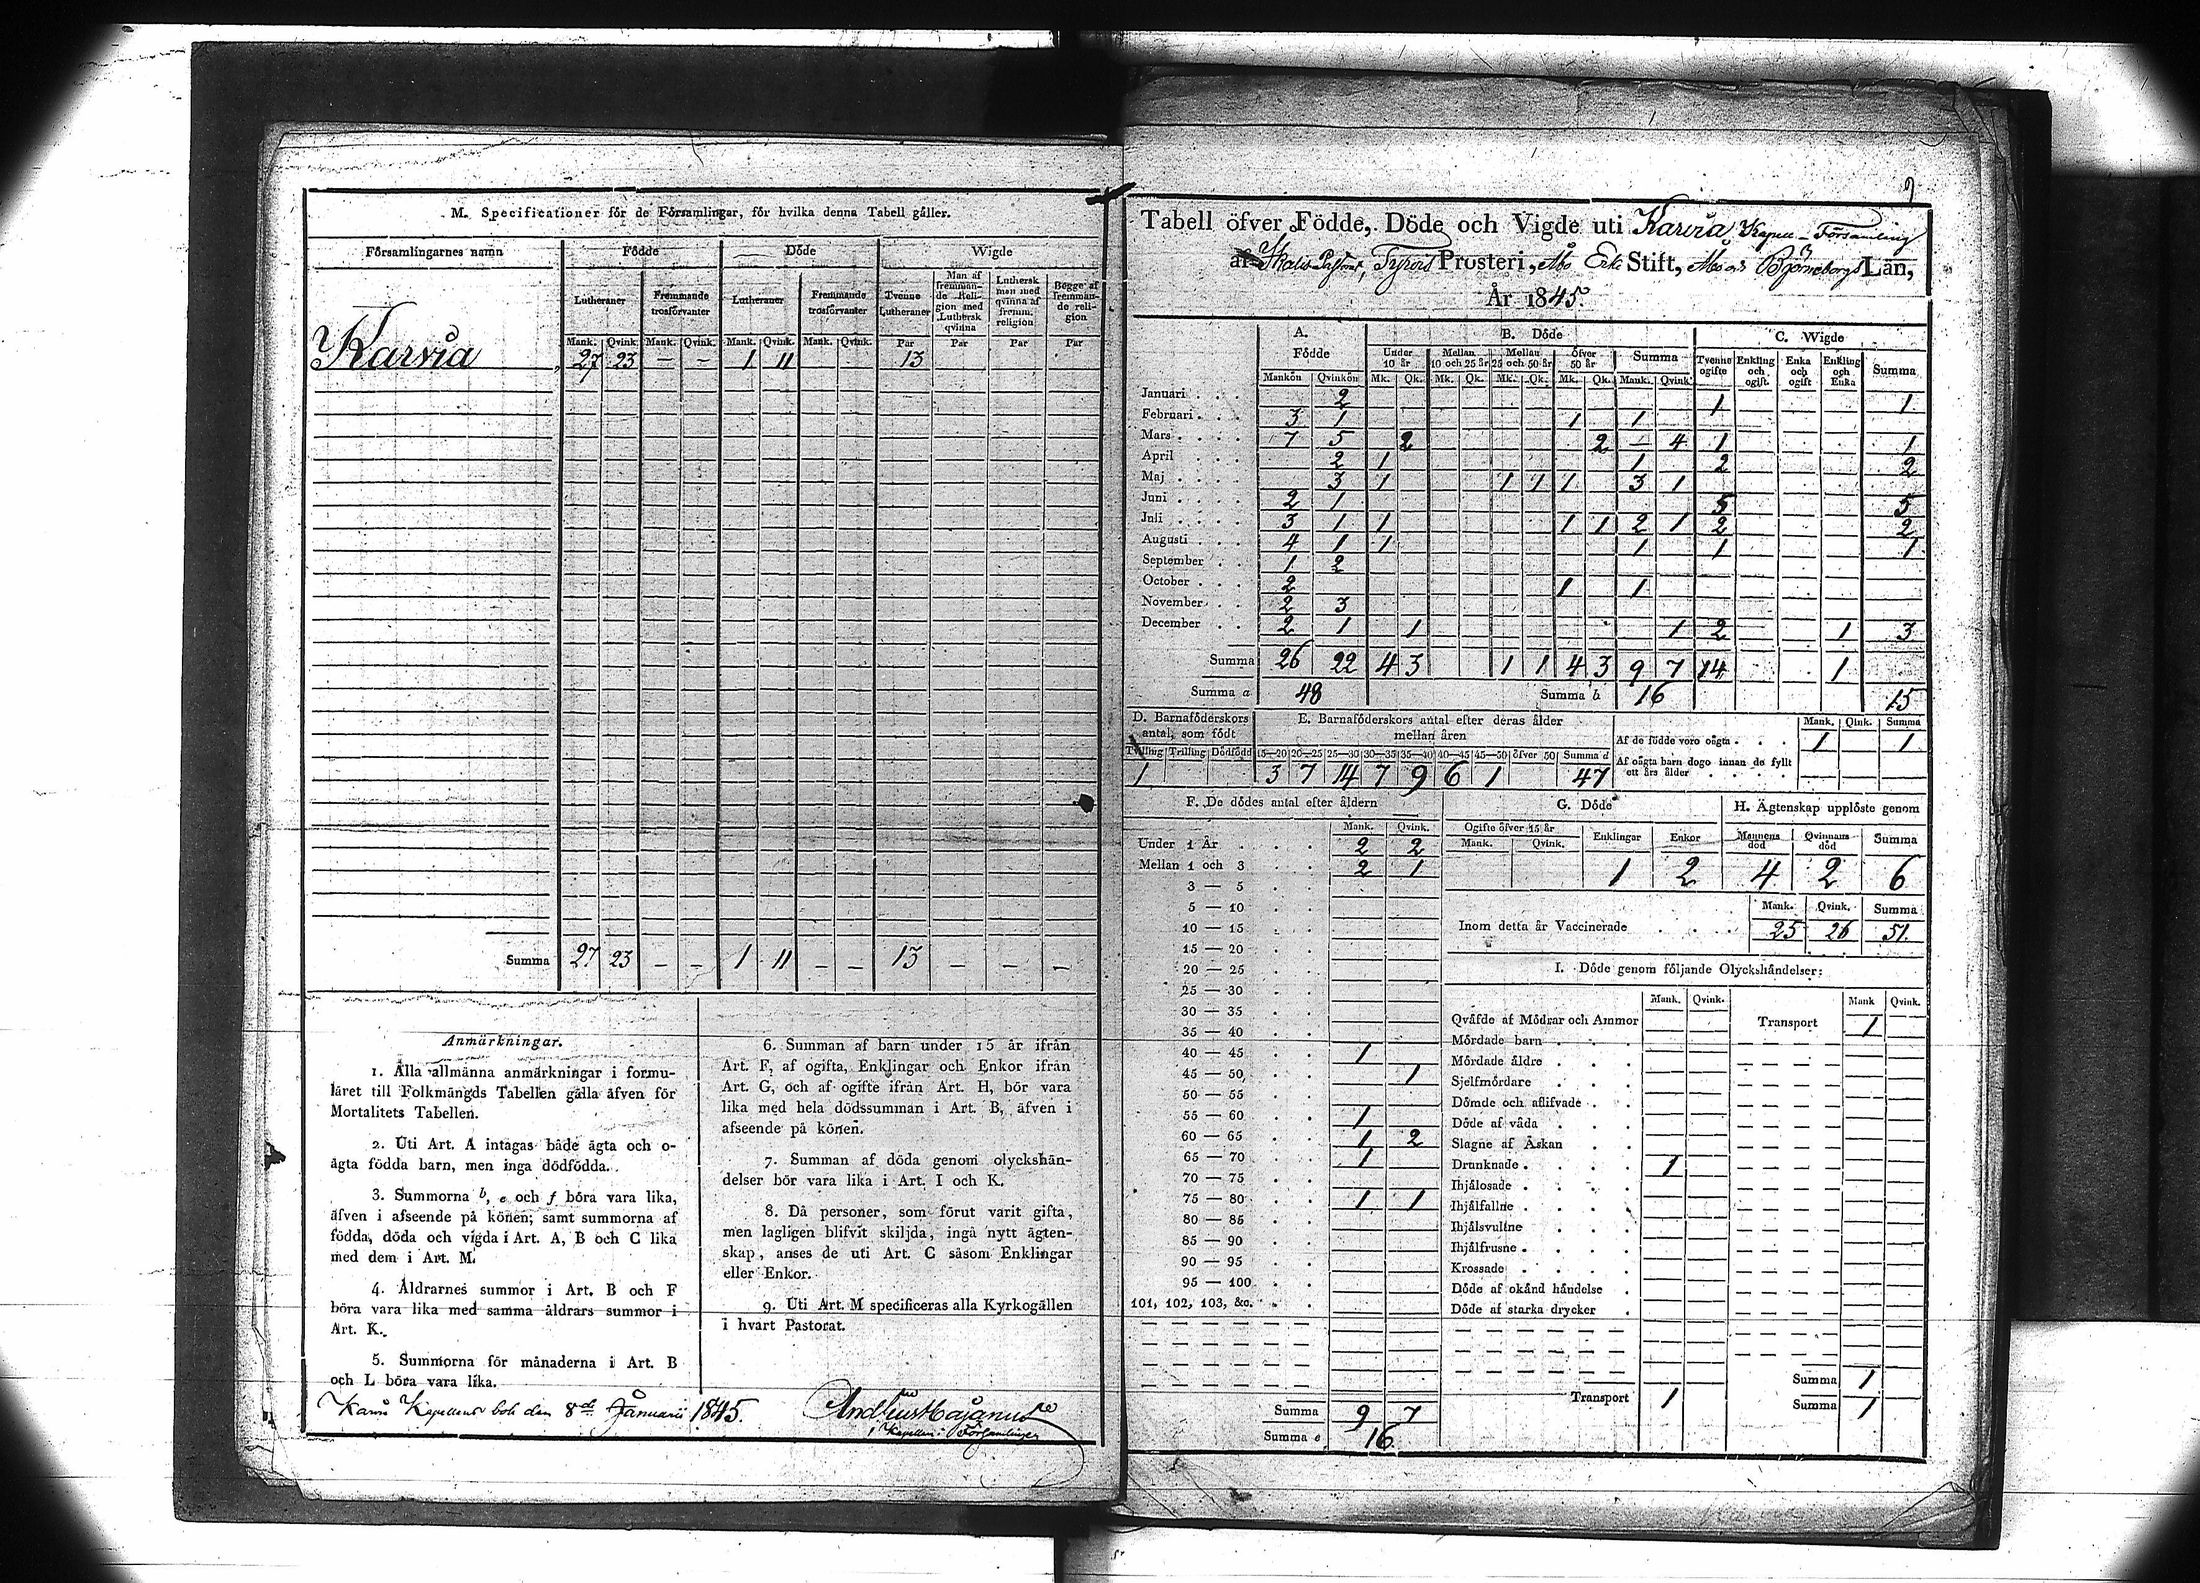 M. Specificationer för de Församlingar, för hvilka denna Tabell gäller.
Församlingarnes namn Födde Döde Wigde
Lutheraner Fremmande trosförvanter Lutheraner Fremmande trosförvanter Tvenne Lutheraner Man af fremmande Religion med Luthersk qvinna Luthersk man med qvinna af fremm. religion Begge af fremmande religion
Mank. Qvink. Mank. Qvink. Mank. Qvink. Mank. Qvink. Par Par Par Par
Karvia 27 23 — — 1 11 13
Summa 27 23 — — 1 11 — — 13 — — —
Anmärkningar.
1. Alla allmänna anmärkningar i formu-
läret till Folkmängds Tabellen gälla äfven för
Mortalitets Tabellen.
2. Uti Art. A intagas både ägta och o-
ägta födda barn, men inga dödfödda.
3. Summorna b, e och f böra vara lika,
äfven i afseende på könen; samt summorna af
födda, döda och vigda i Art. A, B och C lika
med dem i Art. M.
4. Åldrarnes summor i Art. B och F
böra vara lika med samma åldrars summor i
Art. K.
5. Summorna för månaderna i Art. B
och L böra vara lika.
6. Summan af barn under 15 år ifrån
Art. F, af ogifta, Enklingar och Enkor ifrån
Art. G, och af ogifte ifrån Art. H, bör vara
lika med hela dödssumman i Art. B, äfven i
afseende på könen.
7. Summan af döda genom olyckshän-
delser bör vara lika i Art. I och K.
8. Då personer, som förut varit gifta,
men lagligen blifvit skiljda, ingå nytt ägten-
skap, anses de uti Art. C såsom Enklingar
eller Enkor.
9. Uti Art. M specificeras alla Kyrkogällen
i hvart Pastorat.
den 8de Januarii 1845.
Tabell öfver Födde, Döde och Vigde uti Karvia Kapell-Församling
af Pastorat, Prosteri, Åbo Erke Stift, Åbo och Björneborgs Län,
År 1845.
A. Födde B. Döde C. Wigde
Under 10 år Mellan 10 och 25 år Mellan 25 och 50 år Öfver 50 år Summa Tvenne ogifte Enkling och ogift Enka och ogift Enkling och Enka Summa
Mankön Qvinkön Mk. Qk. Mk. Qk. Mk. Qk. Mk. Qk. Mank. Qvink.
Januari 2 1 1
Februari 3 1 1 1
Mars 7 5 2 2 — 4 1 1
April 2 1 1 2 2
Maj 3 1 1 1 1 3 1
Juni 2 1 5 5
Juli 3 1 1 1 1 2 1 2 2
Augusti 4 1 1 1 1 1
September 1 2
October 2 1 1
November 2 3
December 2 1 1 1 2 1 3
Summa 26 22 4 3 1 1 4 3 9 7 14 1
Summa a 48 Summa b 16 15
D. Barnaföderskors antal, som födt
Tvilling Trilling Dödfödd
1
E. Barnaföderskors antal efter deras ålder
mellan åren
15—20 20—25 25—30 30—35 35—40 40—45 45—50 öfver 50 Summa d
3 7 14 7 9 6 1 47
Mank. Qink. Summa
Af de födde voro oägta 1 1
Af oägta barn dogo innan de fyllt
ett års ålder
F. De dödes antal efter åldern
Mank. Qvink.
Under 1 År 2 2
Mellan 1 och 3 2 1
3 — 5
5 — 10
10 — 15
15 — 20
20 — 25
25 — 30
30 — 35
35 — 40
40 — 45 1
45 — 50 1
50 — 55
55 — 60 1
60 — 65 1 2
65 — 70 1
70 — 75
75 — 80 1 1
80 — 85
85 — 90
90 — 95
95 — 100
101, 102, 103, &c.
Summa 9 7
Summa e 16
G. Döde
Ogifte öfver 15 år Enklingar Enkor
Mank. Qvink.
1 2
H. Ägtenskap upplöste genom
Mannens död Qvinnans död Summa
4 2 6
Mank. Qvink. Summa
Inom detta år Vaccinerade 25 26 51.
I. Döde genom följande Olyckshändelser:
Mank. Qvink. Mank Qvink.
Qväfde af Mödrar och Ammor Transport 1
Mördade barn
Mördade äldre
Sjelfmördare
Dömde och aflifvade
Döde af våda
Slagne af Åskan
Drunknade 1
Ihjälosade
Ihjälfallne
Ihjälsvultne
Ihjälfrusne
Krossade
Döde af okänd händelse
Döde af starka drycker
Summa 1
Transport 1 Summa 1